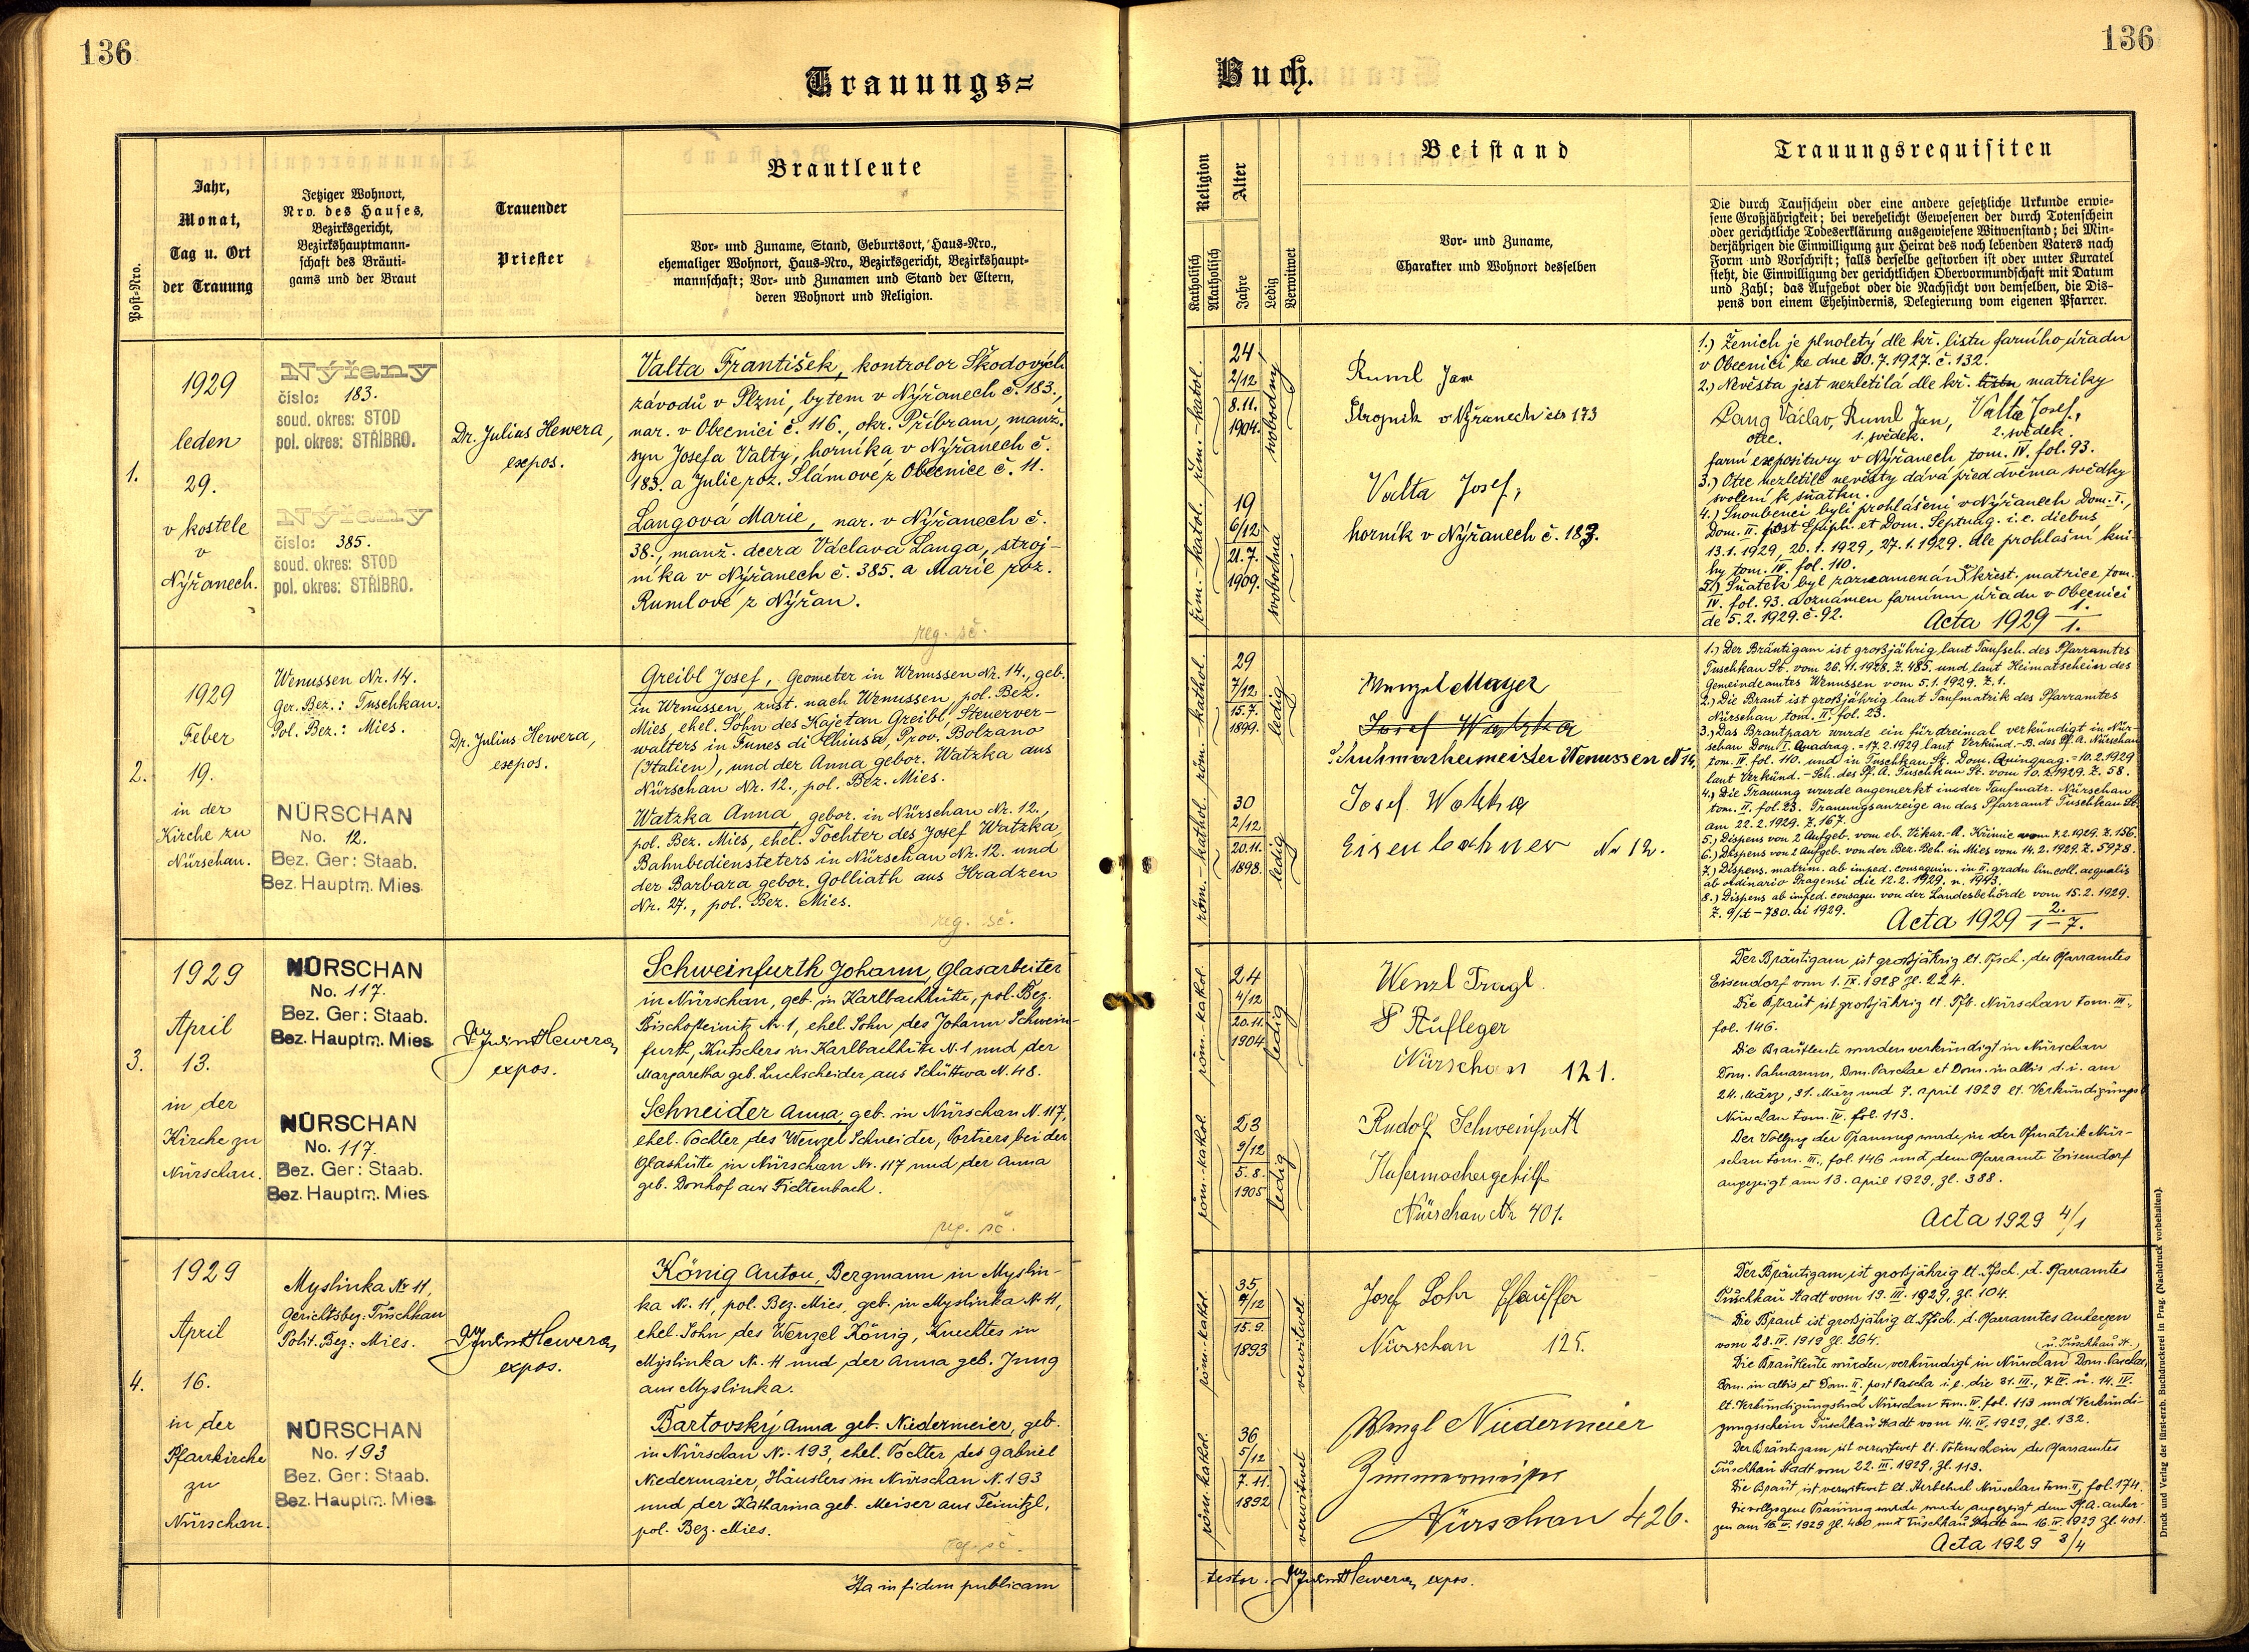 136
136
Trauungs=
Buch.
Post-Nro.
Jahr,
Monat,
Tag u. Ort
der Trauung
Jetziger Wohnort,
Nro. des Hauses,
Bezirksgericht,
Bezirkshauptmann-
schaft des Bräuti-
gams und der Braut
Trauender
Priester
Brautleute
Vor- und Zuname, Stand, Geburtsort, Haus-Nro.,
ehemaliger Wohnort, Haus-Nro., Bezirksgericht, Bezirkshaupt-
mannschaft; Vor- und Zunamen und Stand der Eltern,
deren Wohnort und Religion.
Religion
Katholisch
Akatholisch
Alter
Jahre
Ledig
Verwitwet
Beistand
Vor- und Zuname,
Charakter und Wohnort desselben
Trauungsrequisiten
Die durch Taufschein oder eine andere gesetzliche Urkunde erwie-
sene Großjährigkeit; bei verehelicht Gewesenen der durch Totenschein
oder gerichtliche Todeserklärung ausgewiesene Witwenstand; bei Min-
derjährigen die Einwilligung zur Heirat des noch lebenden Vaters nach
Form und Vorschrift; falls derselbe gestorben ist oder unter Kuratel
steht, die Einwilligung der gerichtlichen Obervormundschaft mit Datum
und Zahl; das Aufgebot oder die Nachsicht von demselben, die Dis-
pens von einem Ehehindernis, Delegierung vom eigenen Pfarrer.
1.
1929
leden
29.
v kostele
v
Nýřanech.
Nýřany
číslo: 183.
soud. okres: STOD
pol. okres: STŘÍBRO.
Nýřany
číslo: 385.
soud. okres: STOD
pol. okres: STŘÍBRO.
Dr. Julius Hewera,
expos.
Valta František, kontrolor Škodových
závodů v Plzni, bytem v Nýřanech č. 183.,
nar. v Obecnici č. 116., okr. Příbram, manž.
syn Josefa Valty, horníka v Nýřanech č.
183. a Julie roz. Slámové z Obecnice č. 11.
Langová Marie, nar. v Nýřanech č.
38., manž. dcera Václava Langa, stroj-
níka v Nýřanech č. 385. a Marie roz.
Rumlové z Nýřan.
reg. sč.
řím.-katol.
24
2/12
8.11.
1904.
svobodný
řím.-katol.
19
6/12
21.7.
1909.
svobodná
Ruml Jan
Strojník v Nýřanech čís 173
Valta Josef,
horník v Nýřanech č. 183.
1.) Ženich je plnoletý dle kř. listu farního úřadu
v Obecnici ze dne 30.7.1927. č. 132.
2.) Nevěsta jest nezletilá dle kř. listu matriky
Lang Václav, Ruml Jan, Valta Josef,
otec. 1. svědek. 2. svědek
farní expositury v Nýřanech tom. IV. fol. 93.
3.) Otec nezletilé nevěsty dává před dvěma svědky
svolení k sňatku.
4.) Snoubenci byli prohlášeni v Nýřanech Dom. I.,
Dom. II. post Epiph. et Dom. Septuag. i. e. diebus
13.1.1929, 20.1.1929, 27.1.1929. dle prohlašní kni-
hy tom. IV. fol. 110.
5.) Sňatek byl zaznamenán v křest. matrice tom.
IV. fol. 93. a oznámen farnímu úřadu v Obecnici
de 5.2.1929. č. 92.
Acta 1929 1./1.
2.
1929
Feber
19.
in der
Kirche zu
Nürschan.
Wenussen Nr. 14.
Ger. Bez.: Tuschkau.
Pol. Bez.: Mies.
NÜRSCHAN
No. 12.
Bez. Ger: Staab.
Bez. Hauptm. Mies
Dr. Julius Hewera,
expos.
Greibl Josef, Geometer in Wenussen Nr. 14., geb.
in Wenussen, zust. nach Wenussen, pol. Bez.
Mies, ehel. Sohn des Kajetan Greibl, Steuerver-
walters in Funes di Chiusa, Prov. Bolzano
(Italien), und der Anna gebor. Watzka aus
Nürschan Nr. 12., pol. Bez. Mies.
Watzka Anna, gebor. in Nürschan Nr. 12.,
pol. Bez. Mies, ehel. Tochter des Josef Watzka,
Bahnbediensteters in Nürschan Nr. 12. und
der Barbara gebor. Golliath aus Hradzen
Nr. 27., pol. Bez. Mies.
reg. sč.
röm.-kathol.
29
7/12
15.7.
1899.
ledig
röm.-kathol.
30
2/12
20.11.
1898.
ledig
Wenzel Mayer
Josef Watzka
Schuhmachermeister Wenussen N 14.
Josef Watzka
Eisenbahner Nr 12.
1.) Der Bräutigam ist großjährig laut Taufsch. des Pfarramtes
Tuschkau St. vom 26.11.1928. Z. 485. und laut Heimatschein des
Gemeindeamtes Wenussen vom 5.1.1929. Z. 1.
2.) Die Braut ist großjährig laut Taufmatrik des Pfarramtes
Nürschan tom. II. fol. 23.
3.) Das Brautpaar wurde ein für dreimal verkündigt in Nür-
schan Dom. I. Quadrag. = 17.2.1929. laut Verkünd.-B. des Pf. A. Nürschan
tom. IV. fol. 110. und in Tuschkau St. Dom. Quinquag. = 10.2.1929
laut Verkünd.-Sch. des Pf. A. Tuschkau St. vom 10.2.1929. Z. 58.
4.) Die Trauung wurde angemerkt in der Taufmatr. Nürschan
tom. II. fol. 23. Trauungsanzeige an das Pfarramt Tuschkau St.
am 22.2.1929. Z. 167.
5.) Dispens von 2 Aufgeb. vom eb. Vikar.-A. Křimic vom 7.2.1929. Z. 156.
6.) Dispens von 2 Aufgeb. von der Bez. Beh. in Mies vom 14.2.1929. Z. 5978.
7.) Dispens. matrim. ab imped. consaguin. in II. gradu lin. coll. aequalis
ab ordinario Pragensi die 12.2.1929. n. 1943.
8.) Dispens ab imped. consagu. von der Landesbehörde vom 15.2.1929.
Z. 9/t - 780. ai 1929.
Acta 1929 2./1-7.
3.
1929
April
13.
in der
Kirche zu
Nürschau.
NÜRSCHAN
No. 117.
Bez. Ger: Staab.
Bez. Hauptm. Mies
NÜRSCHAN
No. 117.
Bez. Ger: Staab.
Bez. Hauptm. Mies
Hewera,
expos.
Schweinfurth Johann, Glasarbeiter
in Nürschan, geb. in Karlbachhütte, pol. Bez.
Bischofteinitz Nr. 1, ehel. Sohn des Johann Schwein-
furth, Kutschers in Karlbachhütte N. 1 und der
Margaretha geb. Luckscheider aus Schüttwa N. 48.
Schneider Anna, geb. in Nürschan N. 117,
ehel. Tochter des Wenzel Schneider, Portiers bei der
Glashütte in Nürschan Nr. 117 und der Anna
geb. Donhof aus Fichtenbach.
reg. sč.
röm.-kathol.
24
4/12
20.11.
1904
ledig
röm.-kathol.
23
9/12
5.8.
1905
ledig
Wenzl Tragl
Nürschan 121.
Rudolf Schweinfurth
Hafermachergehilfe
Nürschan Nr 401.
Der Bräutigam ist großjährig lt. Tfsch. des Pfarramtes
Eisendorf vom 1. IX. 1928 Zl. 224.
Die Braut ist großjährig lt. Tfb. Nürschan tom. III.,
fol. 146.
Die Brautleute wurden verkündigt in Nürschan
Dom. Palmarum, Dom. Paschae et Dom. in albis d. i. am
24. März, 31. März und 7. April 1929 lt. Verkündigungsb.
Nürschan tom. IV. fol. 113.
Der Vollzug der Trauung wurde in der Tfmatrik Nür-
schan tom. III., fol. 146 und dem Pfarramte Eisendorf
angezeigt am 13. April 1929, Zl. 388.
Acta 1929 4/1
4.
1929
April
16.
in der
Pfarrkirche
zu
Nürschan.
Myslinka Nr 11,
Gerichtsbez. Tuschkau
Polit. Bez.: Mies.
NÜRSCHAN
No. 193
Bez. Ger: Staab.
Bez. Hauptm. Mies
Hewera,
expos.
König Anton, Bergmann in Myslin-
ka Nr. 11, pol. Bez. Mies, geb. in Myslinka Nr 11,
ehel. Sohn des Wenzel König, Knechtes in
Myslinka Nr. 11 und der Anna geb. Jung
aus Myslinka.
Bartovský Anna geb. Niedermeier, geb.
in Nürschan Nr. 193, ehel. Tochter des Gabriel
Niedermaier, Häuslers in Nürschan N. 193
und der Katharina geb. Meiser aus Teinitzl,
pol. Bez. Mies.
reg. sč.
röm.-kathol.
35
7/12
15.9.
1893
verwitwet
röm.-kathol.
36
5/12
7.11.
1892
verwitwet
Josef Lohr
Nürschan 125.
Wenzl Niedermeier
Nürschan 426.
Der Bräutigam ist großjährig lt. Tfsch. d. Pfarramtes
Tuschkau Stadt vom 19. III. 1929, Zl. 104.
Die Braut ist großjährig lt. Tfsch. d. Pfarramtes Auherzen
vom 28. IV. 1919 Zl. 264.
(u. Tuschkau St.)
Die Brautleute wurden verkündigt in Nürschan Dom. Paschae,
Dom. in albis et Dom. II. post Pascha i. e. die 31. III., 7. IV. u. 14. IV.
lt. Verkündigungsbuch Nürschan tom. IV. fol. 113 und Verkündi-
gungsschein Tuschkau Stadt vom 14. IV. 1929, Zl. 132.
Der Bräutigam ist verwitwet lt. Totenschein des Pfarramtes
Tuschkau Stadt vom 22. III. 1929, Zl. 113.
Die Braut ist verwitwet lt. Sterbebuch Nürschan tom. II, fol. 174.
Die vollzogene Trauung wurde wurde angezeigt dem Pf. A. Auher-
zen am 16. IV. 1929 Zl. 400 und Tuschkau Stadt am 16. IV. 1929 Zl. 401.
Acta 1929 3/4
Ita in fidem publicam
testor. Hewera, expos.
Druck und Verlag der fürst-erzb. Buchdruckerei in Prag. (Nachdruck vorbehalten).